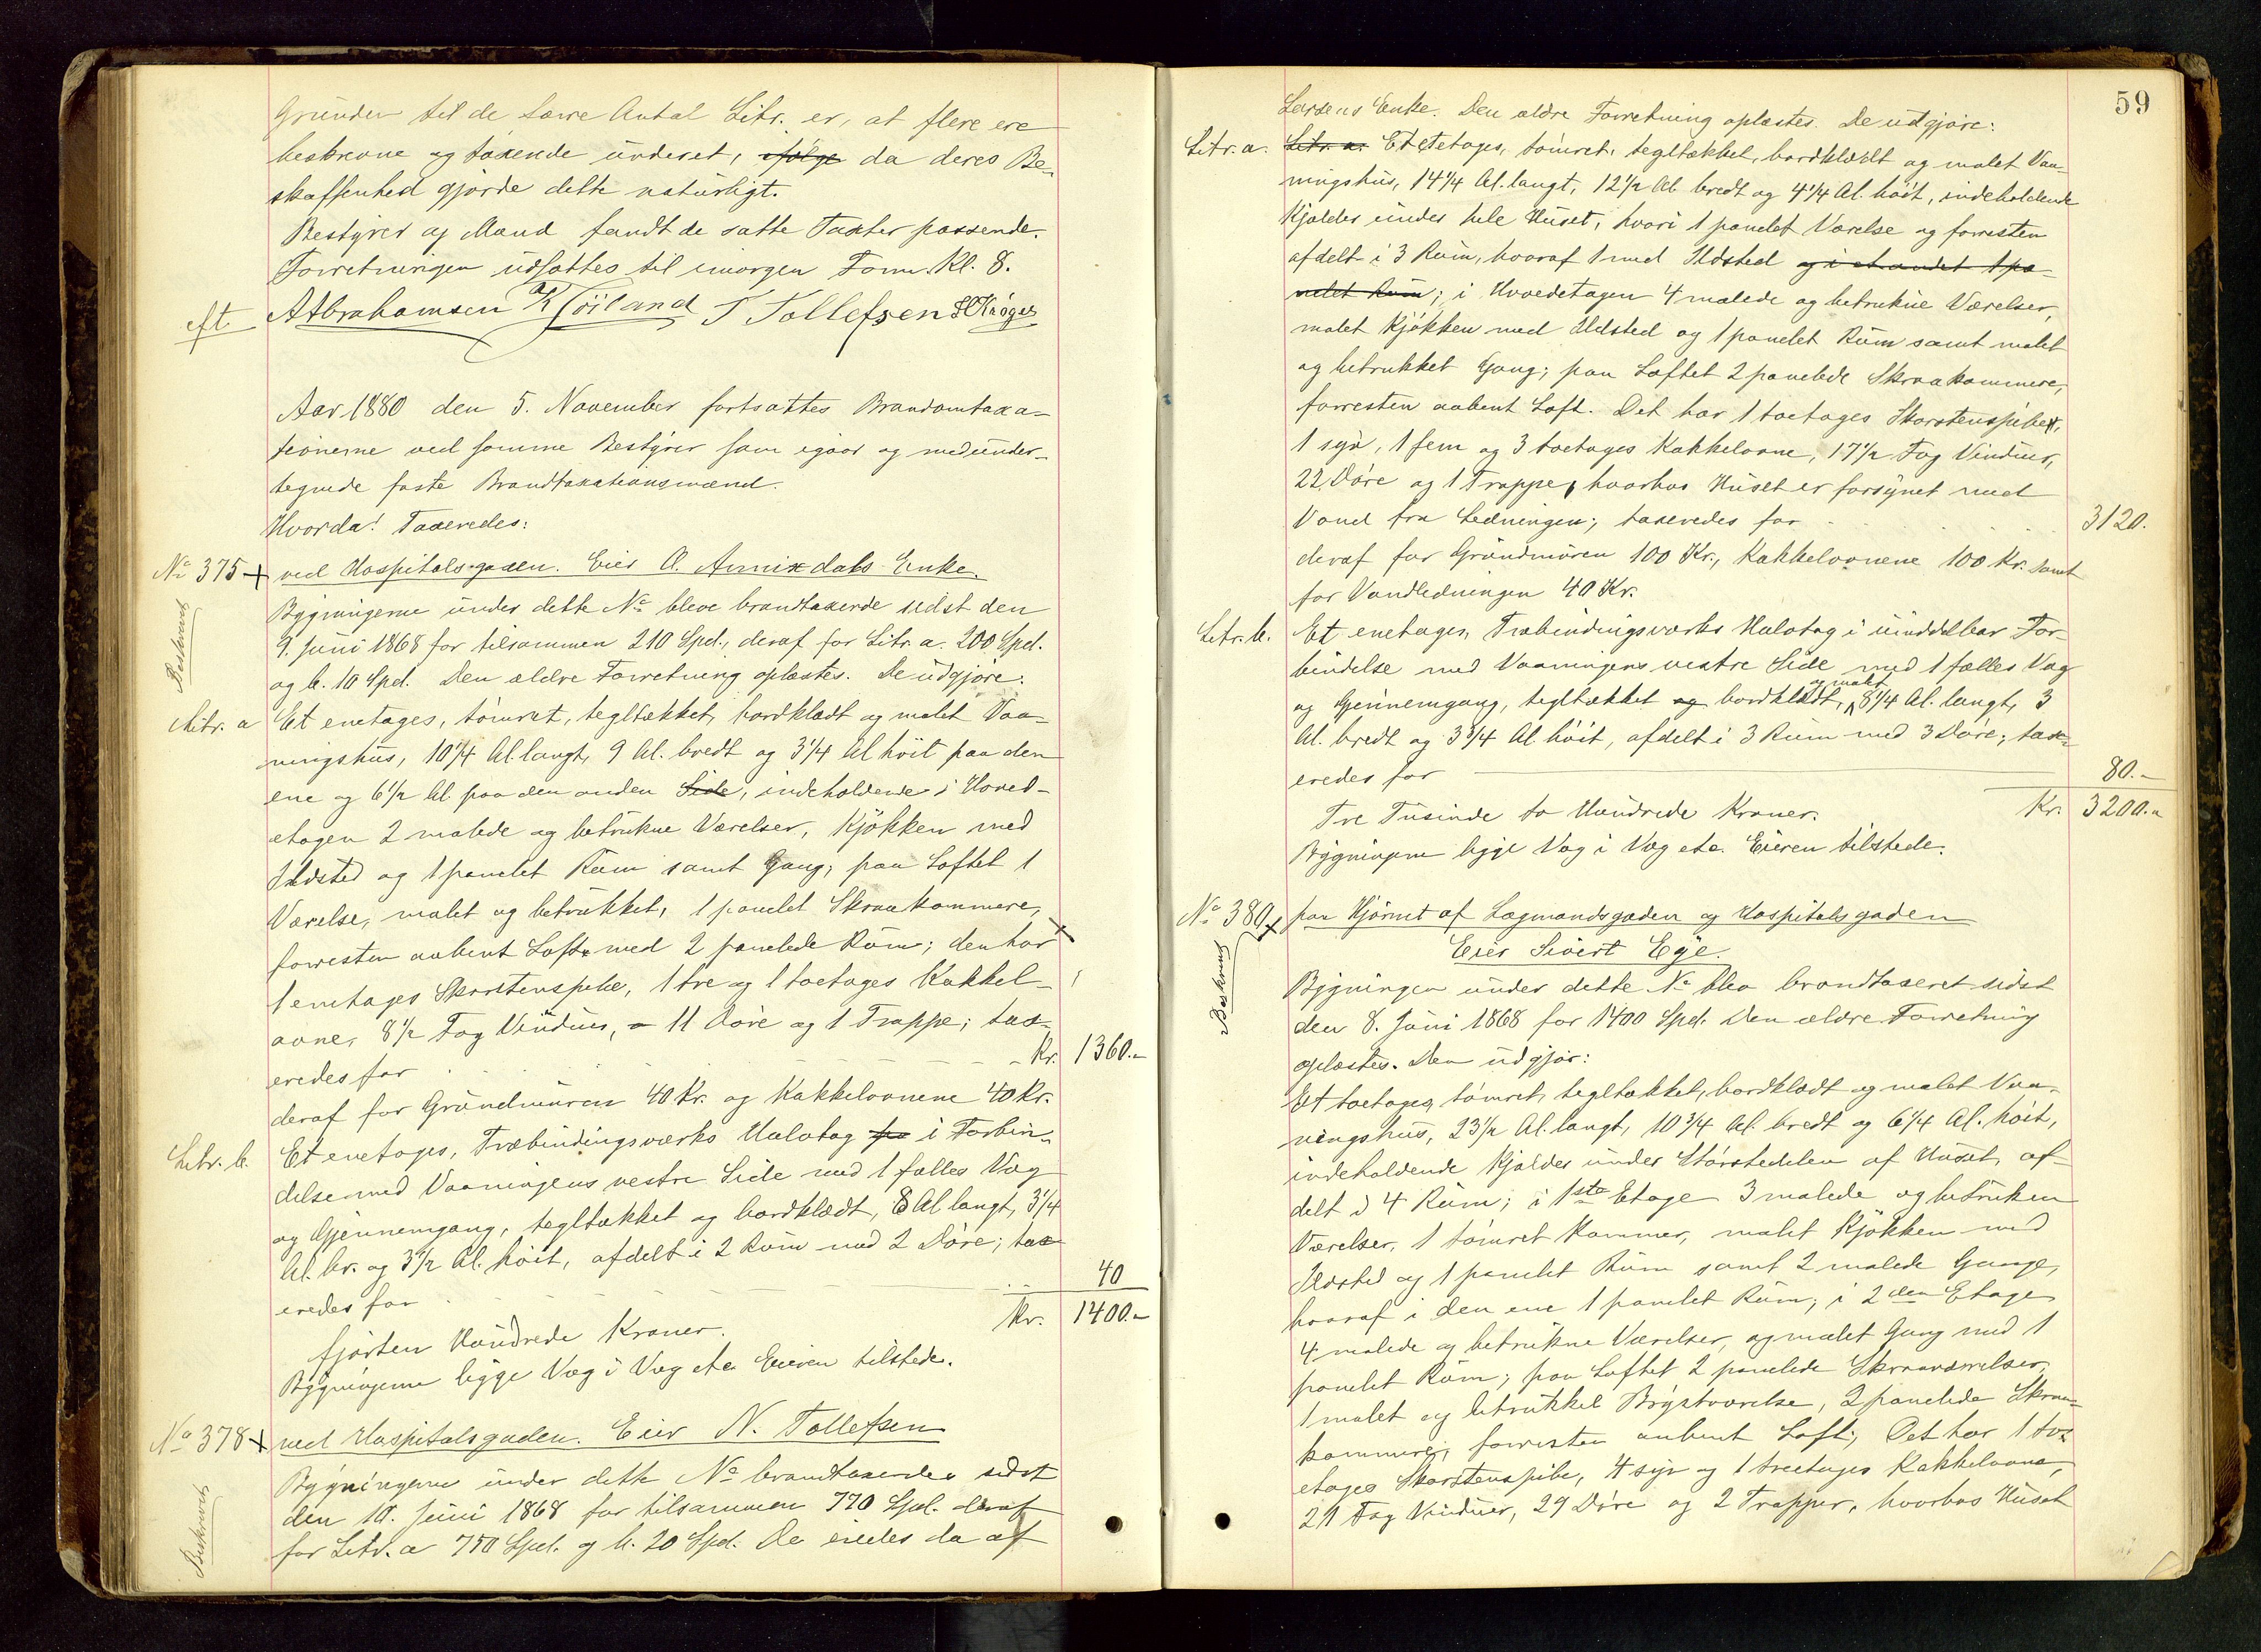 Grunden til de færre Antal Litr. er, at flere ere
beskrevne og taxerede underet, ifölge da deres Be-
skaffenhed gjorde dette naturligt.
Bestyrer og Mænd fandt de satte Taxter passende.
Forretningen udsattes til imorgen Form. Kl. 8.
eft. A Abrahamsen T Tollefsen
Aar 1880 den 5. November fortsattes Brandomtaxa-
tionerne ved samme Bestyrer som igaar og medunder-
tegnede faste Brandtaxationsmænd.
Hvorda! Taxeredes:
No 375 + ved Hospitalsgaden. Eier A. Annixdals Enke.
Beskrevet
Bygningerne under dette No bleve brandtaxerede sidst den
9. Juni 1868 for tilsammen 210 Spd., deraf for Litr. a. 200 Spd.
og b. 10 Spd. Den ældre Forretning oplæstes. De udgjøre:
Litr. a Et enetages, tömret, tegltækket, bordklædt og malet Vaa-
ningshus, 10 1/4 Al. langt, 9 Al. bredt og 3 1/4 Al höit paa den
ene og 6 1/2 Al. paa den anden Side, indeholdende i Hoved-
etagen 2 malede og betrukne Værelser, Kjökken med
Ildsted og 1 panelet Rum samt Gang; paa Loftet 1
Værelse, malet og betrukket, 1 panelet Skraakammere,
forresten aabent Loft med 2 panelede Rum; den har
1 enetages Skorstenspibe, 1 tre og 1 toetages Kakkel-
ovne, 8 1/2 Fag Vinduer, 11 Döre og 1 Trappe; tax-
eredes for Kr. 1360.-
deraf for Grundmuren 40 Kr. og Kakkelovnene 40 Kr.
Litr. b. Et enetages, Træbindingsværks Halvtag i Forbin-
delse med Vaaningens vestre Side med 1 fælles Væg
og Gjennemgang, tegltækket og bordklædt, 8 Al langt, 3 1/4
Al. br. og 3 1/2 Al. höit, afdelt i 2 Rum med 2 Döre; tax-
eredes for 40
fjorten Hundrede Kroner. Kr. 1400.-
Bygningerne ligge Væg i Væg etc. Eieren tilstede.
No 378 + ved Hospitalsgaden. Eier N. Tollefsen
Beskrevet
Bygningerne under dette No brandtaxeredes sidst
den 10. Juni 1868 for tilsammen 770 Spd. deraf
for Litr. a 750 Spd. og b. 20 Spd. De eiedes da af
59
Larsens Enke. Den ældre Forretning oplæstes. De udgjøre:
Litr. a. Litr. a. Et etetages, tömret, tegltækket, bordklædt og malet Vaa-
ningshus, 14 1/4 Al. langt, 12 1/2 Al. bredt og 4 1/4 Al. höit, indeholdende
Kjælder under hele Huset, hvori 1 panelet Værelse og forresten
afdelt i 3 Rum, hvoraf 1 med Ildsted og i et andet 1 pa-
nelet Rum; i Hovedetagen 4 malede og betrukne Værelser,
malet Kjökken med Ildsted og 1 panelet Rum samt malet
og betrukket Gang; paa Loftet 2 panelede Skraakammere,
forresten aabent Loft. Det har 1 toetages Skorstenspibe,
1 syv, 1 fem og 3 toetages Kakkelovne, 17 1/2 Fag Vinduer,
22 Döre og 1 Trappe, hvorhos Huset er forsynet med
Vand fra Ledningen; taxeredes for 3120.
deraf for Grundmuren 100 Kr., Kakkelovnene 100 Kr. samt
for Vandledningen 40 Kr.
Litr. b. Et enetages, Træbindingsværks Halvtag i umiddelbar For-
bindelse med Vaaningens vestre Side med 1 fælles Væg
og Gjennemgang, tegltækket og bordklædt, og malet 8 1/4 Al. langt, 3
Al. bredt og 3 3/4 Al. höit, afdelt i 3 Rum med 3 Döre; tax-
eredes for 80.-
Tre Tusinde to Hundrede Kroner. Kr. 3200.-
Bygningerne ligge Væg i Væg etc. Eieren tilstede.
No 380 + paa Hjörnet af Lagmandsgaden og Hospitalsgaden
Eier Sivert Egje.
Beskrevet
Bygningen under dette No blev brandtaxeret sidst
den 8. Juni 1868 for 1400 Spd. Den ældre Forretning
oplæstes. Den udgjör:
Et toetages, tömret, tegltækket, bordklædt og malet Vaa-
ningshus, 23 1/2 Al. langt, 10 3/4 Al. bredt og 6 1/4 Al. höit,
indeholdende Kjælder under Störstedelen af Huset, af-
delt i 4 Rum; i 1ste Etage 3 malede og betrukken
Værelser, 1 tömret Kammer, malet Kjökken med
Ildsted og 1 panelet Rum samt 2 malede Gange,
hvoraf i den ene 1 panelet Rum; i 2den Etage
4 malede og betrukne Værelser, og malet Gang med 1
panelet Rum; paa Loftet 2 panelede Skraaværelser,
1 malet og betrukket Brystværelse, 2 panelede Skraa-
kammere, forresten aabent Loft; Det har 1 to-
etages Skorstenspibe, 4 syv og 1 treetages Kakkelovne,
21 Fag Vinduer, 29 Döre og 2 Trapper, hvorhos Huset